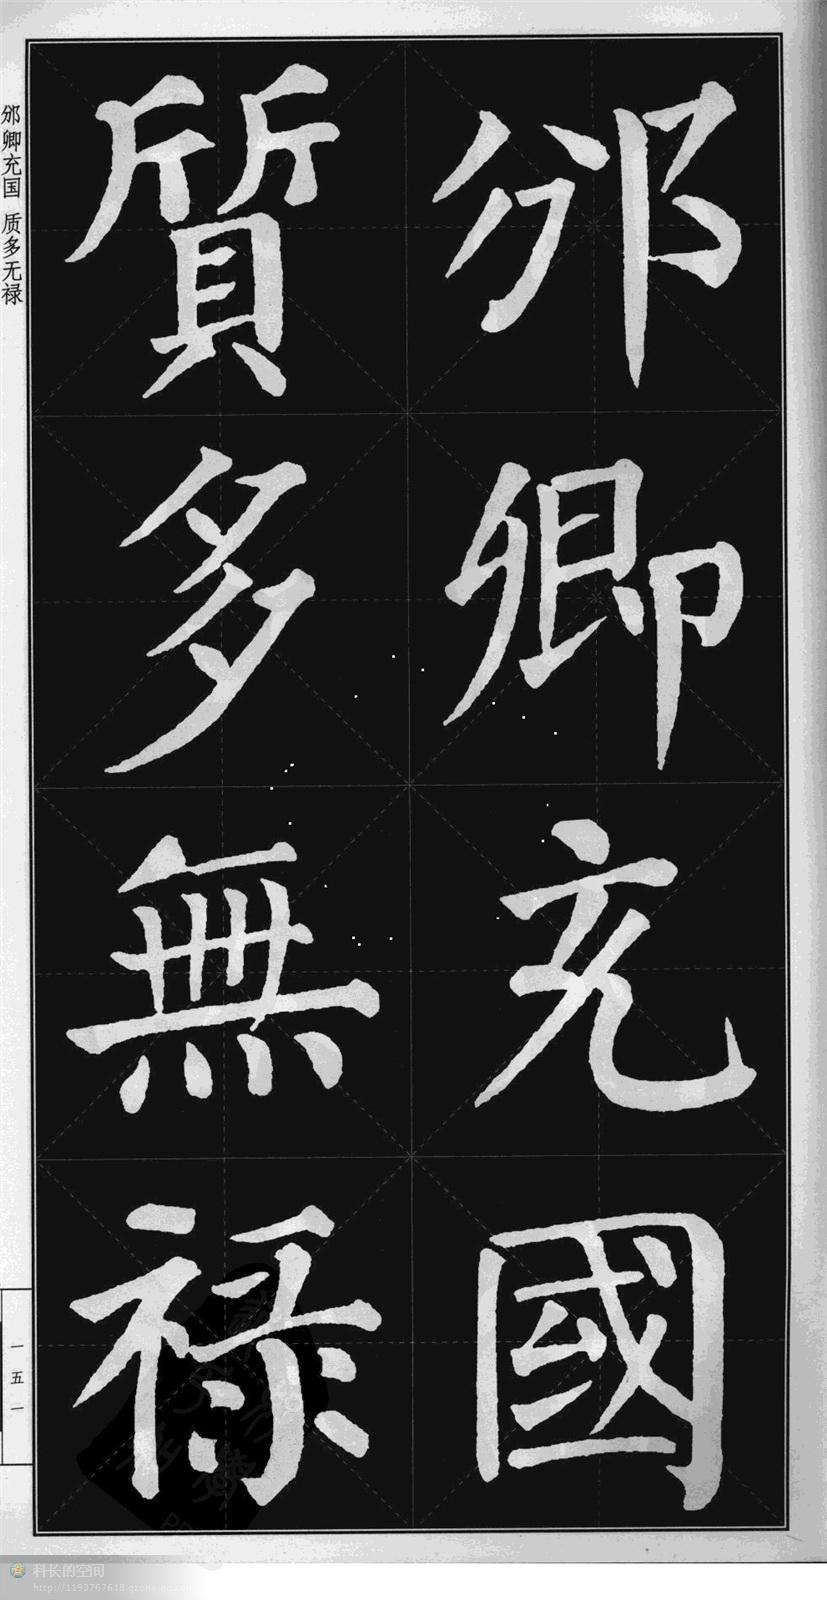 邠卿充國
質多無禄
邠卿充国 质多无禄
一五一
科长的空间
http://1193767618.qzone.qq.com